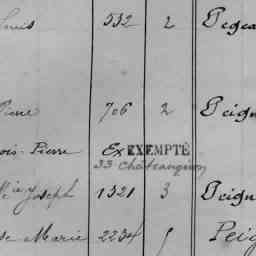 Louis 532 2
Pierre 706 2 Peign
ois-Pierre Ex EXEMPTÉ
33 Châteaugiron
Joseph 1321 3 Peign
Marie 2234 Peig